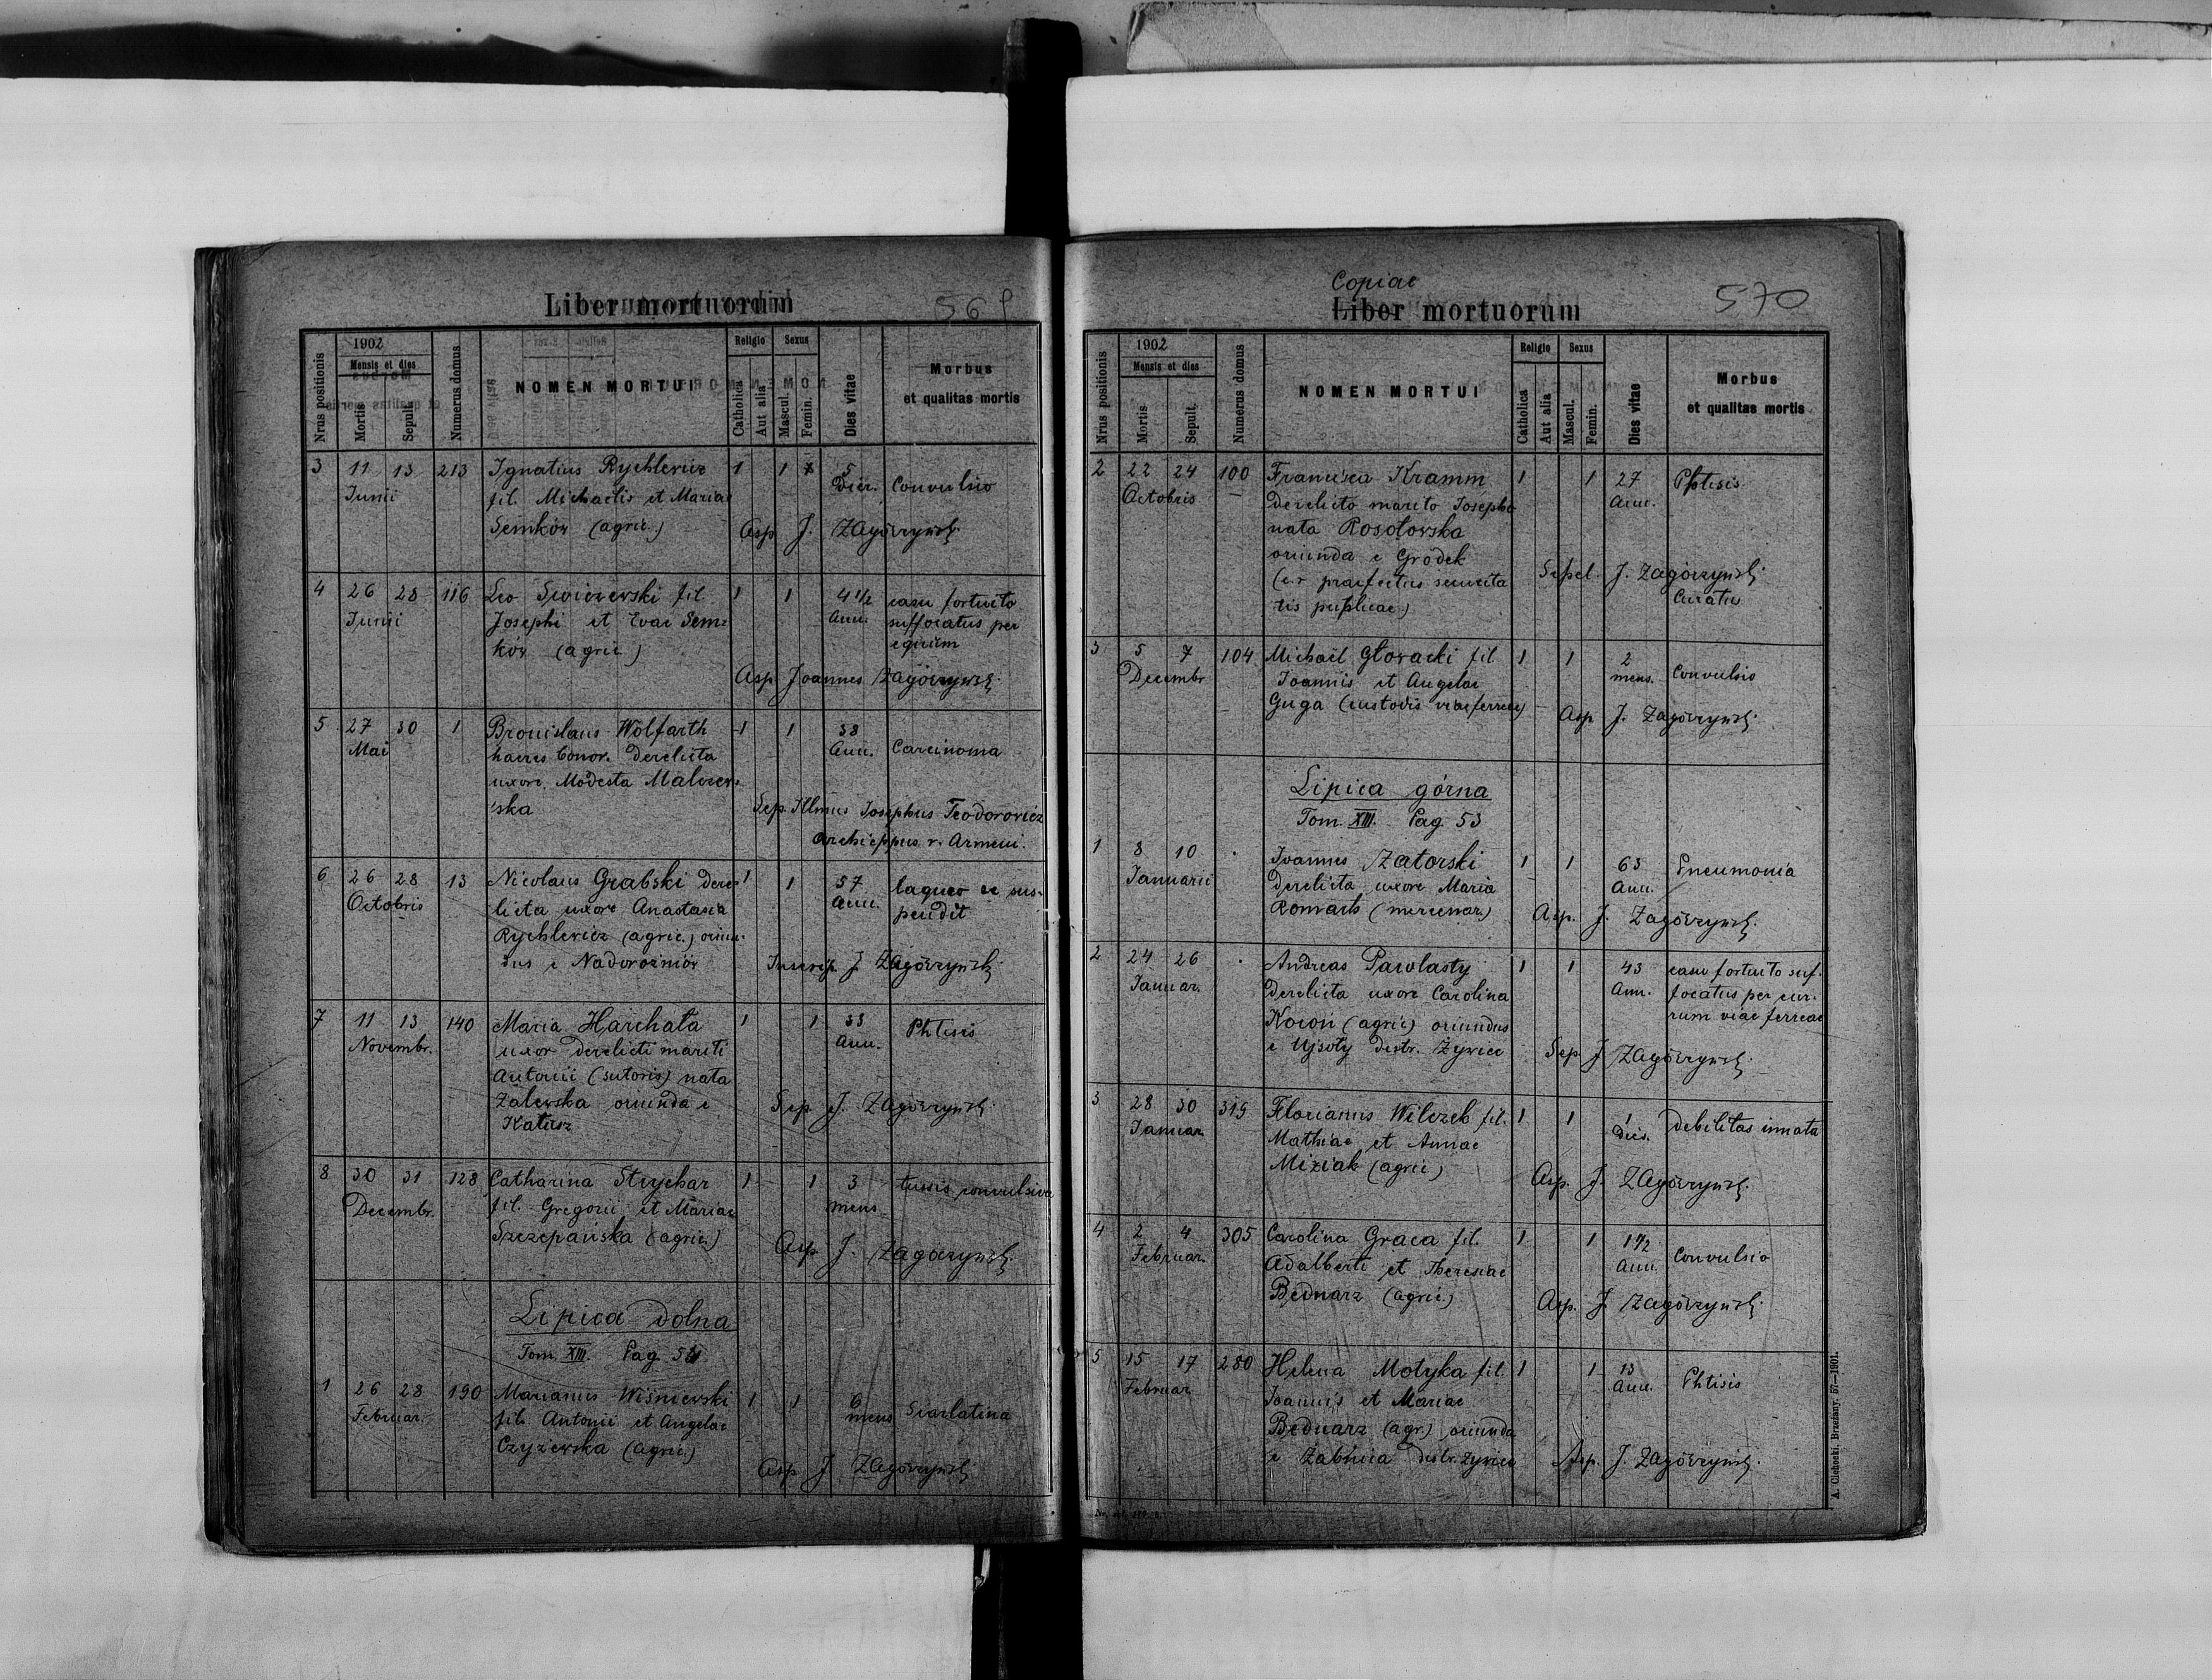 Liber mortuorum
569
Nrus positionis
1902
Mensis et dies
Mortis
Sepult.
Numerus domus
NOMEN MORTUI
Religio
Catholica
Aut alia
Sexus
Mascul.
Femin.
Dies vitae
Morbus
et qualitas mortis
3 11 13 213 Ignatius Rychlewicz 1 1 5 Convulsio
Junii fil. Michaelis et Mariae Dier.
Semków (agric.) Asp J. Zagórzyński
4 26 28 116 Leo Siwiczewski fil. 1 1 4 1/2 casu fortuito
Junii Josephi et Evae Sem= Ann. suffocatus per
ków (agric.) equum
Asp Joannes Zagórzyński
5 27 30 1 Bronislaus Wolfarth 1 1 58 Carcinoma
Mai haeres bonor. derelicta Ann.
uxore Modesta Malczew=
ska Sep. Illmus Josephus Teodorowicz
Archieppus r. Armeni.
6 26 28 13 Nicolaus Grabski dere= 1 1 57 laqueo se sus=
Octobris licta uxore Anastasia Ann. pendit
Rychlewicz (agric.) oriun=
dus e Nadorożniów Inscrip. J. Zagórzyński
7 11 13 140 Maria Harchała 1 1 33 Phtisis
Novembr. uxor derelicti mariti Ann.
Antonii (sutoris) nata
Zalewska oriunda e Sep. J. Zagórzyński
Kałusz
8 30 31 128 Catharina Strychar 1 1 3 tussis convulsiva
Decembr. fil. Gregorii et Mariae mens
Szczepańska (agric.) Asp J. Zagórzyński
Lipica dolna
Tom. XIII. Pag. 51
1 26 28 190 Marianus Wiśniewski 1 1 6 Scarlatina
Februar. fil. Antonii et Angelae mens
Czyżewska (agric.)
Asp J Zagórzyński
Copiae
Liber mortuorum
570
Nrus positionis
1902
Mensis et dies
Mortis
Sepult.
Numerus domus
NOMEN MORTUI
Religio
Catholica
Aut alia
Sexus
Mascul.
Femin.
Dies vitae
Morbus
et qualitas mortis
2 22 24 100 Francisca Kramm 1 1 27 Phtisis
Octobris derelicto marito Josepho Ann.
nata Rosołowska
oriunda e Gródek
(c.r praefectus securita Sepel. J. Zagórzyński
tis publicae) Curatus
3 5 7 104 Michaël Głowacki fil 1 1 2 Convulsio
Decembr Joannis et Angelae mens.
Guga (custodis viae ferreae) Asp J. Zagórzyński
Lipica górna
Tom. XIII. Pag. 53
1 8 10 Joannes Zatorski 1 1 63 Pneumonia
Januarii derelicta uxore Maria Ann.
Romach (mercenar.) Asp. J. Zagórzyński
2 24 26 Andreas Pawlasty 1 1 43 casu fortuito suf=
Januar. derelicta uxore Carolina Ann. focatus per cur=
Kocoń (agric) oriundus rum viae ferreae
e Ujsoły distr. Żywiec Sep J Zagórzyński
3 28 30 319 Florianus Wilczek fil. 1 1 1 debilitas innata
Januar. Mathiae et Annae Dies.
Miziak (agric) Asp. J. Zagórzyński
4 2 4 305 Carolina Graca fil. 1 1 1 1/2 Convulsio
Februar. Adalberti et Theresiae Ann.
Bednarz (agric.) Asp. J. Zagórzyński
5 15 17 280 Helena Motyka fil 1 1 13 Phtisis
Februar Joannis et Mariae Ann.
Bednarz (agr.) oriunda
e Żabnica distr. Żywiec Asp. J. Zagórzyński
A. Ciehecki. Brzeżany. 57—1901.